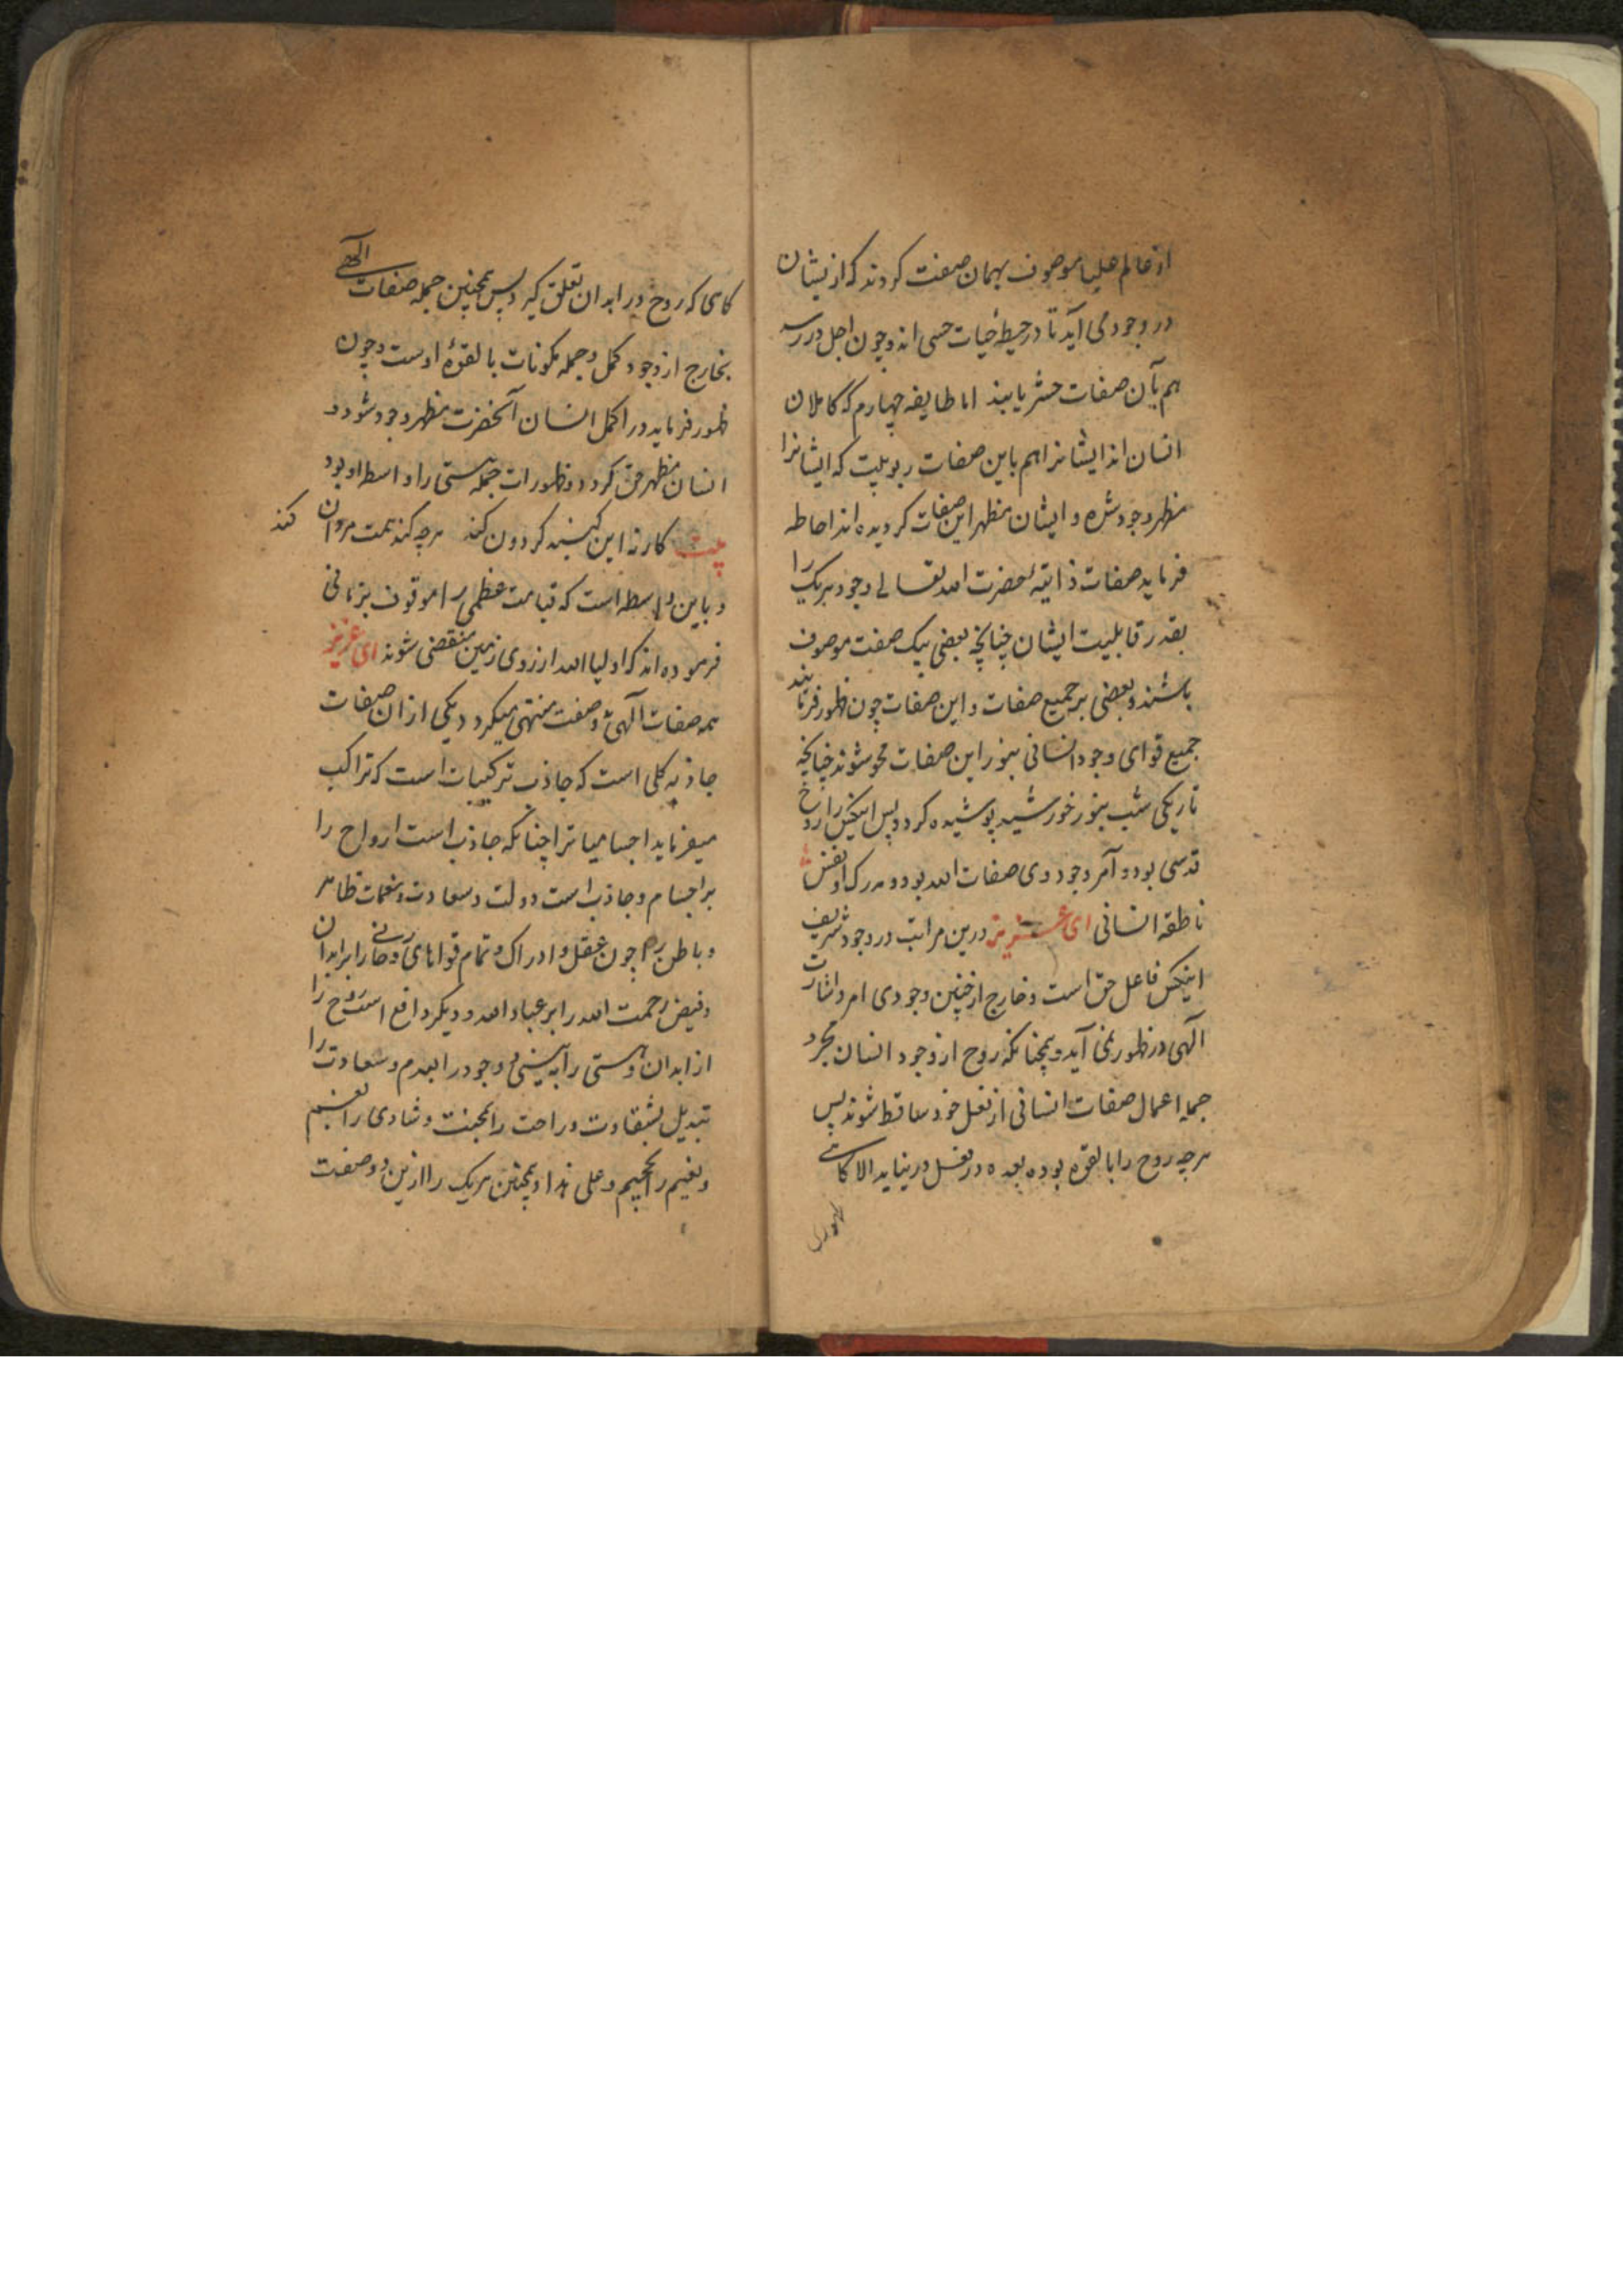 از عالم علیا موصوف بهمان صفت کردند که از نیشان
در وجود می آید تا در حیطهٔ حیات حسی اند و چون اجل در رسد
هم بآن صفات حشر یابند اما طایفه چهارم که کاملان
انسان اند ایشانرا هم باین صفات ربوبیت که ایشانرا
مظهر وجود شده و ایشان مظهر این صفات کردیده اند احاطه
فرماید صفات ذاتیهٔ حضرت الله تعالی وجود هریک را
بقدر قابلیت ایشان چنانچه بعضی بیک صفت موصوف
باشند و بعضی بر جمیع صفات و این صفات چون ظهور فرمایند
جمیع قوای وجود انسانی بنور این صفات محو شوند چنانچه
تاریکی شب بنور خورشید پوشیده کردد پس اینکس را روح
قدسی بود و آمر وجود وی صفات الله بود و مدرک او نفس
ناطقه انسانی ای عزیز درین مراتب در وجود شریف
اینکس فاعل حق است و خارج از چنین وجودی امر و اشارت
الهی در ظهور نمی آید و همچنانکه روح از وجود انسان مجرد
جمله اعمال صفات انسانی از فعل خود ساقط شوند پس
هرچه روح را بالقوه بوده بعده در فعل در نیاید الا کاهی
که روح
کاهی که روح در ابدان تعلق کیرد پس همچنین جمله صفات الهی
بخارج از وجود کمل و جمله مکونات بالقوهٔ اوست و چون
ظهور فرماید در اکمل انسان آنحضرت مظهر وجود شود و
انسان مظهر حق کردد و ظهورات جمله هستی را واسطه او بود
بیت کار نه این کنبد کردون کند هرچه کند همت مردان کند
و باین واسطه است که قیامت عظمی را موقوف بزمانی
فرموده اند که اولیا الله از روی زمین منقضی شوند ای عزیز
همه صفات الهی بدو صفت منتهی میکردد یکی از ان صفات
جاذبه کلی است که جاذب ترکیبات است که تراکب
میفرماید اجسامیاترا چنانکه جاذب است ارواح را
بر اجسام و جاذب است دولت و سعادت و نعمات ظاهر
و باطن را چون عقل و ادراک و تمام قواهای روحانی را بر ابدان
و فیض رحمت الله را بر عباد الله و دیکر دافع است روح را
از ابدان و هستی را به نیستی و وجود را بعدم و سعادت را
تبدیل بشقاوت و راحت را بمحنت و شادی را بغم
و نعیم را بجحیم و علی هذا و همچنین هریک را ازین دو صفت